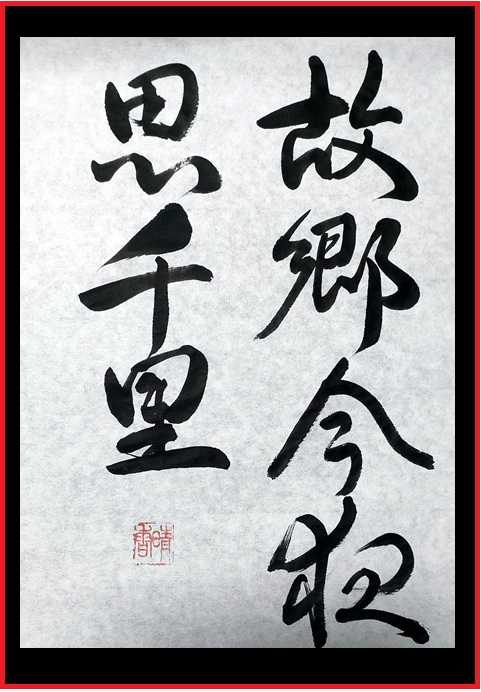 故郷今夜
思千里
晴香